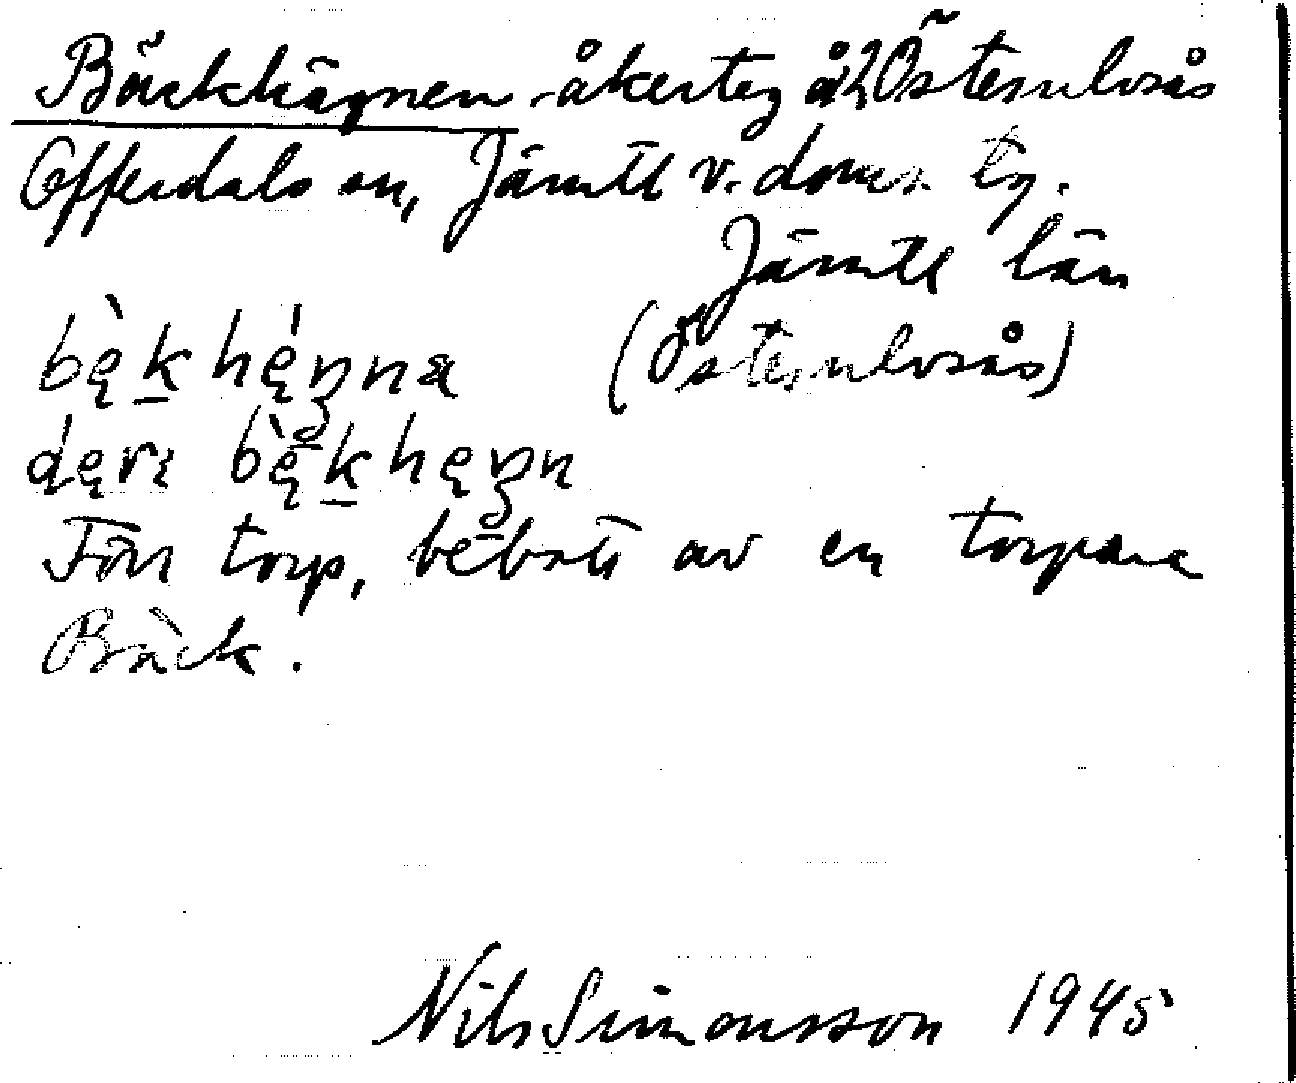 Bäckhägnen - åkerteg å Östernlovsås
Offerdals sn, Jämtl v. doms. tg.
Jämtl län
bę̀k hę́ŋna (Östernlovsås)
dęrı bę̀k hęŋn
Förr torp, bebott av en torpare
Bäck.
Nils Simonsson 1945